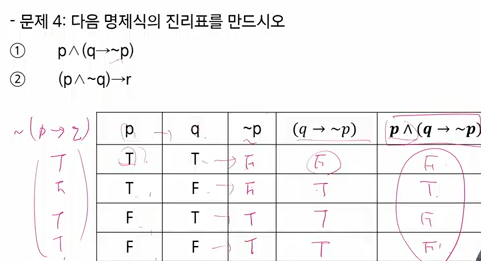 - 문제 4: 다음 명제식의 진리표를 만드시오
① p∧(q→~p)
② (p∧~q)→r
~(p→q) p → q ~p (q → ~p) p ∧ (q → ~p)
T T T → F F F
F T F → F T T
T F T → T T F
T F F → T T F